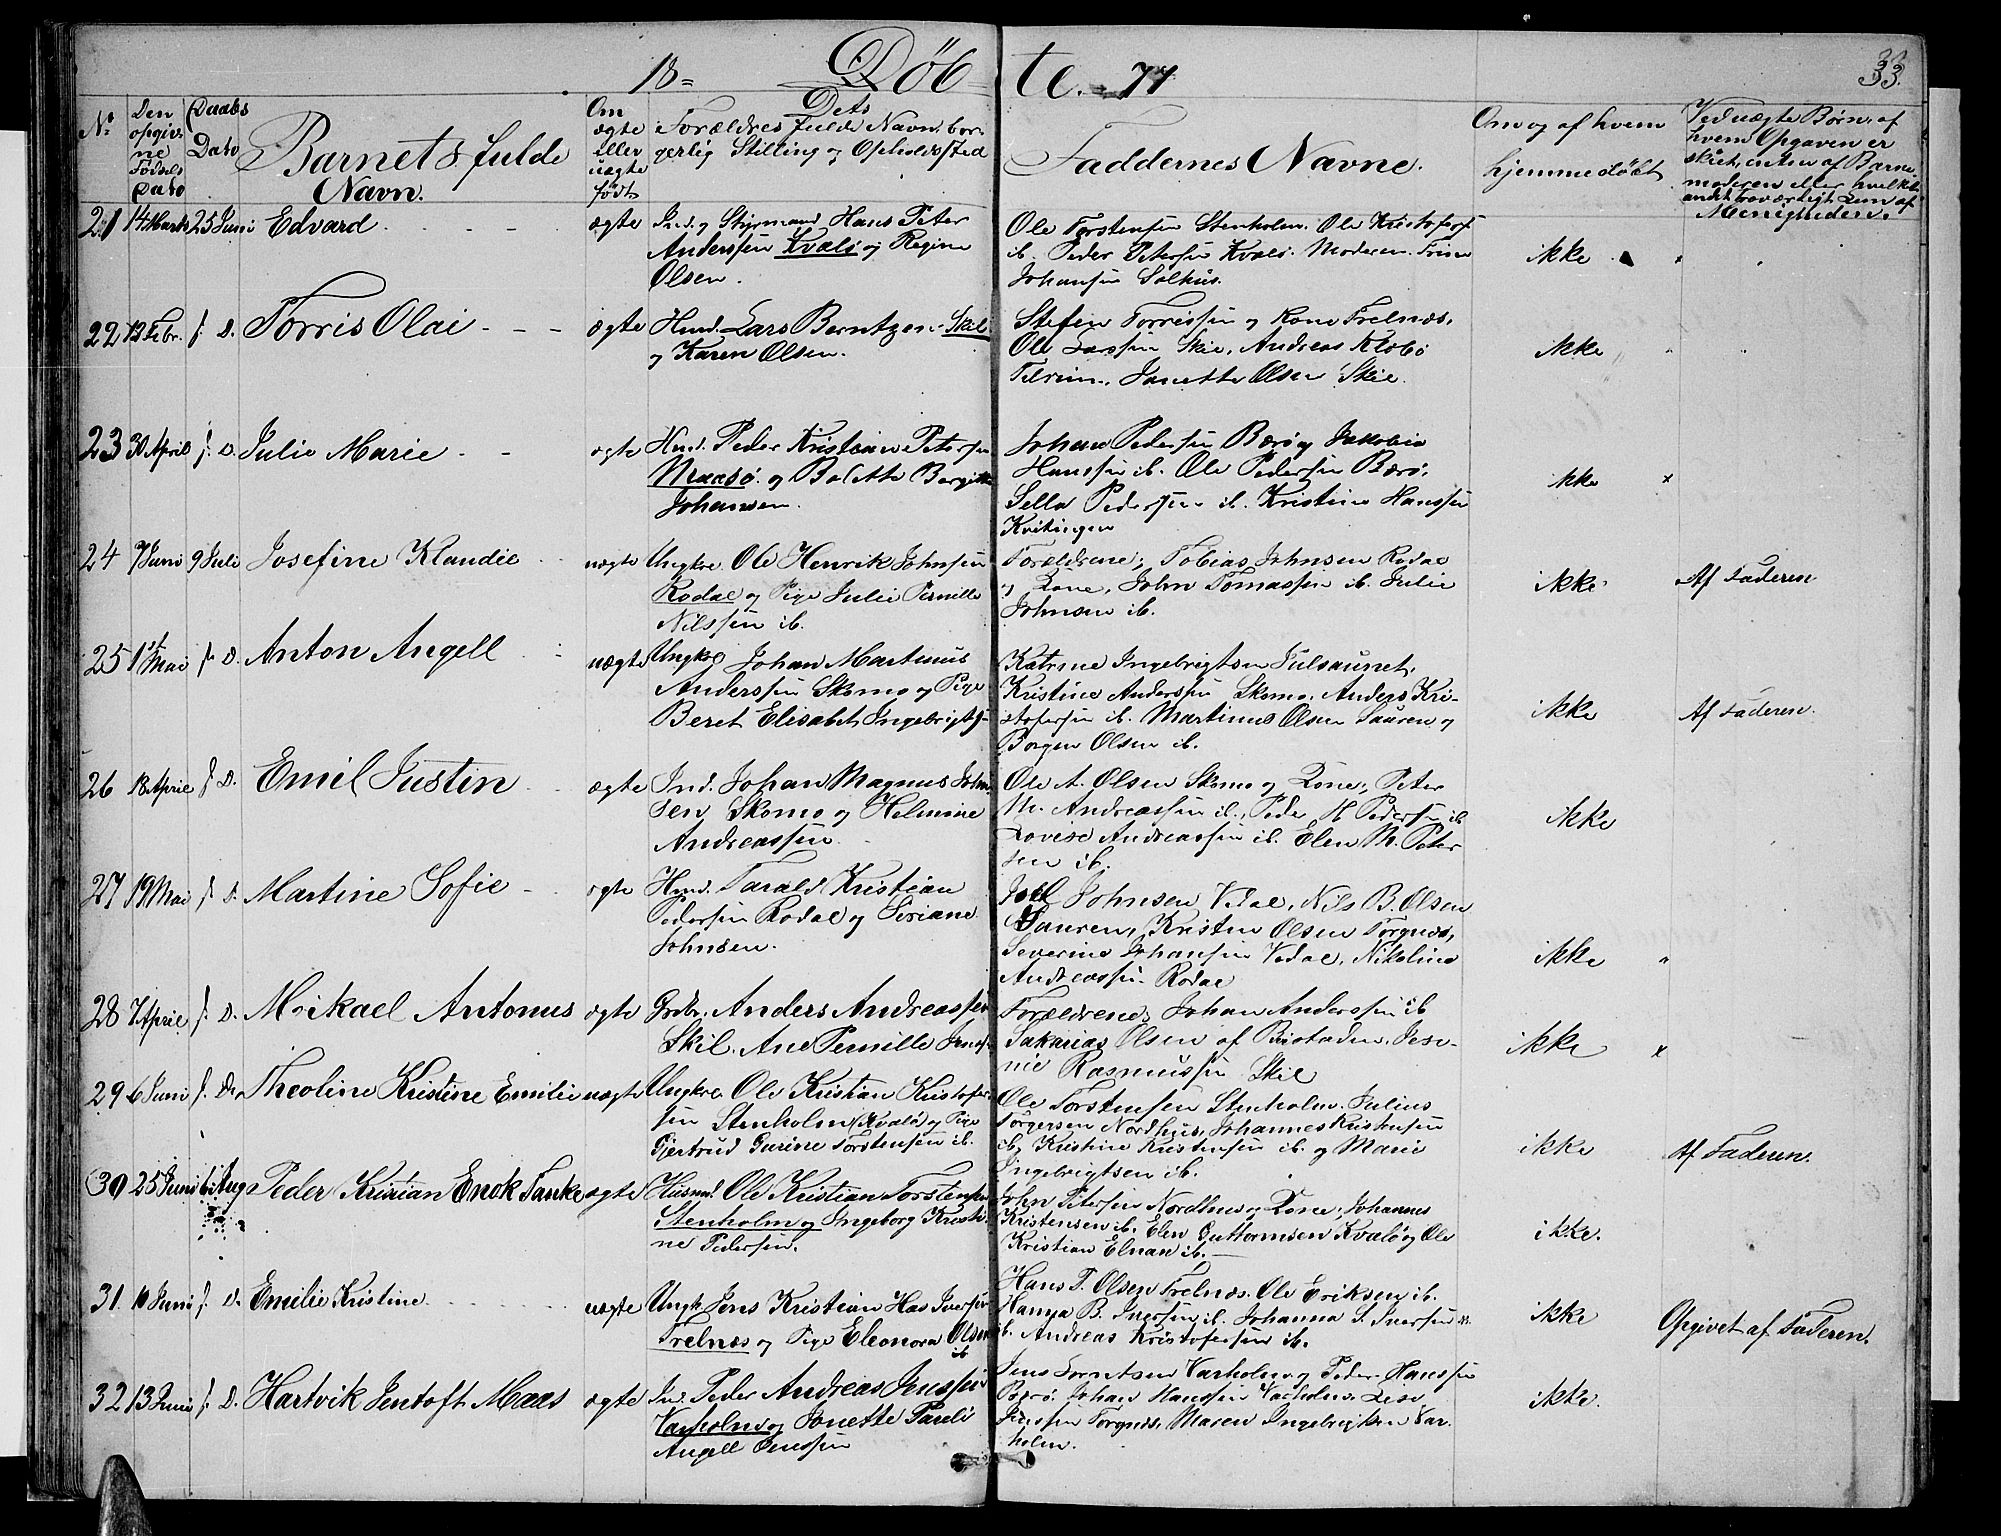 18= Døb te. 77
33.
No
Den opgivne Fødsels Dato
Daabs Dato
Barnets fulde Navn.
Om ægte eller uægte født
Dets Forældres fulde Navn, borgerlig Stilling og Opholdssted
Faddernes Navne.
Om og af hvem hjemmedøbt
Ved uægte Børn, af hvem Opgaven er skeet, enten af Barnemoderen eller hvilket andet troværdigt Lem af Menigheden.
21 14 Marts 25 Juni Edvard ægte Ind. og Styrmand Hans Peter
Anderssen Kvalø og Regine
Olsen.
Ole Torstensen Stenholm. Ole Kristofers.
ib. Peder Petersen Kvalø. Moderen. Trine
Johansen Solhus.
ikke
22 12 Febr. s. D. Torris Olai ægte Husmd. Lars Berntzen Skil
og Karen Olsen.
Stefen Torrissen og Kone Trelnæs.
Ole Larssen Skil, Andreas Klobø
Jonette Olsen Skil.
ikke
23 30 April s. D. Julie Marie ægte Husd. Peder Kristian Petersen
Maasø og Bolette Bergitte
Johansen.
Johan Pedersen Bærø og Jakobia
Hanssen ib. Ole Pedersen Bærø.
Sella Pedersen ib. Kristine Hanssen
Kvitingen
ikke
24 7 Juni 9 Juli Josefine Klaudie uægte Ungkre. Ole Henrik Johnsen
Rodal og Pige Julie Pernille
Nilssen ib.
Forældrene, Tobias Johnsen Rodal
og Kone, John Tomassen ib. Julie
Johnsen ib.
ikke Af Faderen
25 1st Mai s. D. Anton Angell uægte Ungkre Johan Martinus
Anderssen Skomo og Pige
Beret Elisabet Ingebrigts.
Katrine Ingebrigtsen
Kristine Anderssen Skomo. Anders Kri-
stofersen ib. Martinus Olsen Sauren og
Borgen Olsen ib.
ikke Af Faderen.
26 18 April s. D. Emil Justin ægte Ind. Johan Magnus John-
sen Skomo og Helmine
Andreassen.
Ole A. Olsen Skomo og Kone, Peter
M. Andreassen ib., Peder H Pedersen ib
Lovise Andreassen ib. Elen M. Peter
sen ib.
ikke
27 19 Mai s. D. Martine Sofie ægte Husd. Tarald Kristian
Pedersen Rodal og Seriane
Johnsen.
Joel Johnsen Vedal, Nils B. Olsen
Sauren, Kristen Olsen Torgnæs,
Severine Johansen Vedal, Nikoline
Andreassen Rodal
ikke
28 7 April s. D. Mikael Antonus ægte Grdbr. Anders Andreassen
Skil. Ane Pernille Jens.
Forældrene, Johan Anderssen ib
Sakarias Olsen af Bustaden, Jese-
nie Rasmussen Skil
ikke
29 6 Juni s. D. Theoline Kristine Emilie uægte Ungkre. Ole Kristian Kristofer-
sen Stenholm (Kvalø) og Pige
Gjertrud Gurine Torstensen ib.
Ole Torstensen Stenholm. Julius
Torgersen Nordhus, Johannes Kristensen
ib. Kristine Kristensen ib. og Marie
Ingebrigtsen ib.
ikke Af Faderen.
30 25 Juni 6 Aug Peder Kristian Enok Tanke ægte Husmd. Ole Kristian Torstensen
Stenholm og Ingeborg Kristi-
ne Pedersen.
John Petersen Nordhus og Kone, Johannes
Kristensen ib. Elen Guttormsen Kvalø og Ole
Kristian Elnan ib.
ikke.
31. 10 Juni s. D. Emilie Kristine. uægte Ungk. Jens Kristian Has Iversen
Trelnæs og Pige Eleonora Olsen
ib
Hans T. Olsen Trelnæs. Ole Eriksen ib.
Hanna B. Iverssen ib. Johanna S. Iversen
ib. Andreas Kristofersen ib.
ikke Opgivet af Faderen.
32 13 Juni s. D. Hartvik Jentoft Maas ægte Ind. Peder Andreas Jenssen
Varholm og Jonette Pauli
Angell Jenssen
Jens Lorntsen Varholm og Peder Hanssen
Bærø. Johan Hanssen Varholm. Lese
Jenssen Torgnæs, Maren Ingebrigtsen Var-
holm.
ikke.